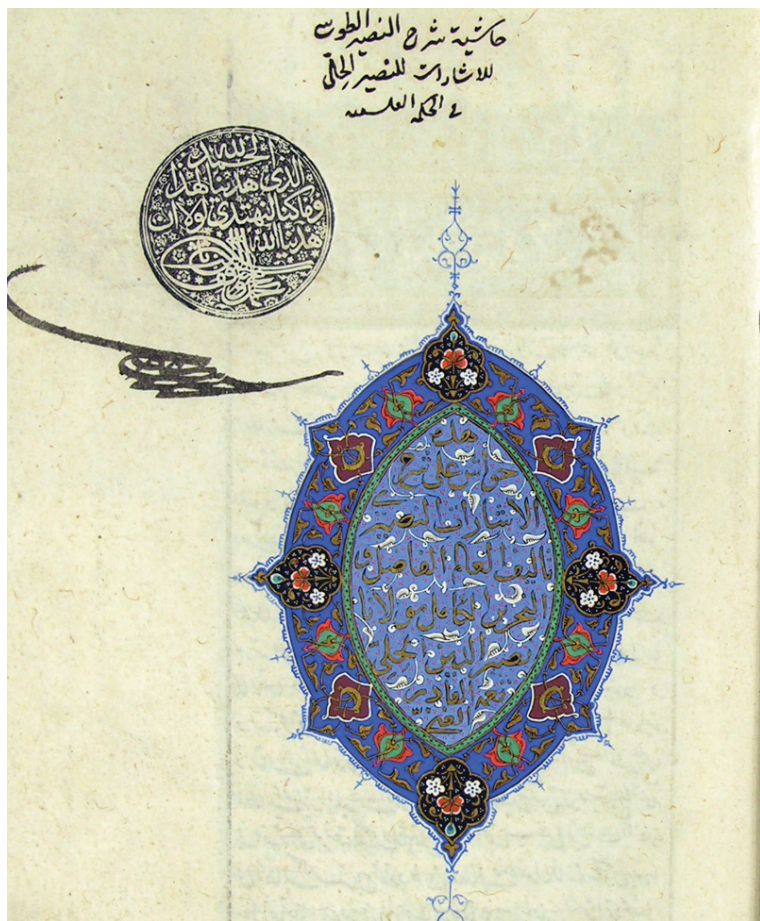 حاشية شرح النصير الطوسي
للاشارات للنصير الحلي
في الحكمة
الحمد لله
الذي هدينا لهذا
وما كنا لنهتدي لولا ان
هدينا الله
هذه
حواشي على شرح
الاشارات
تاليف العالم الفاضل و
البحر الكامل مولانا
نصير الدين الحلي
القادر